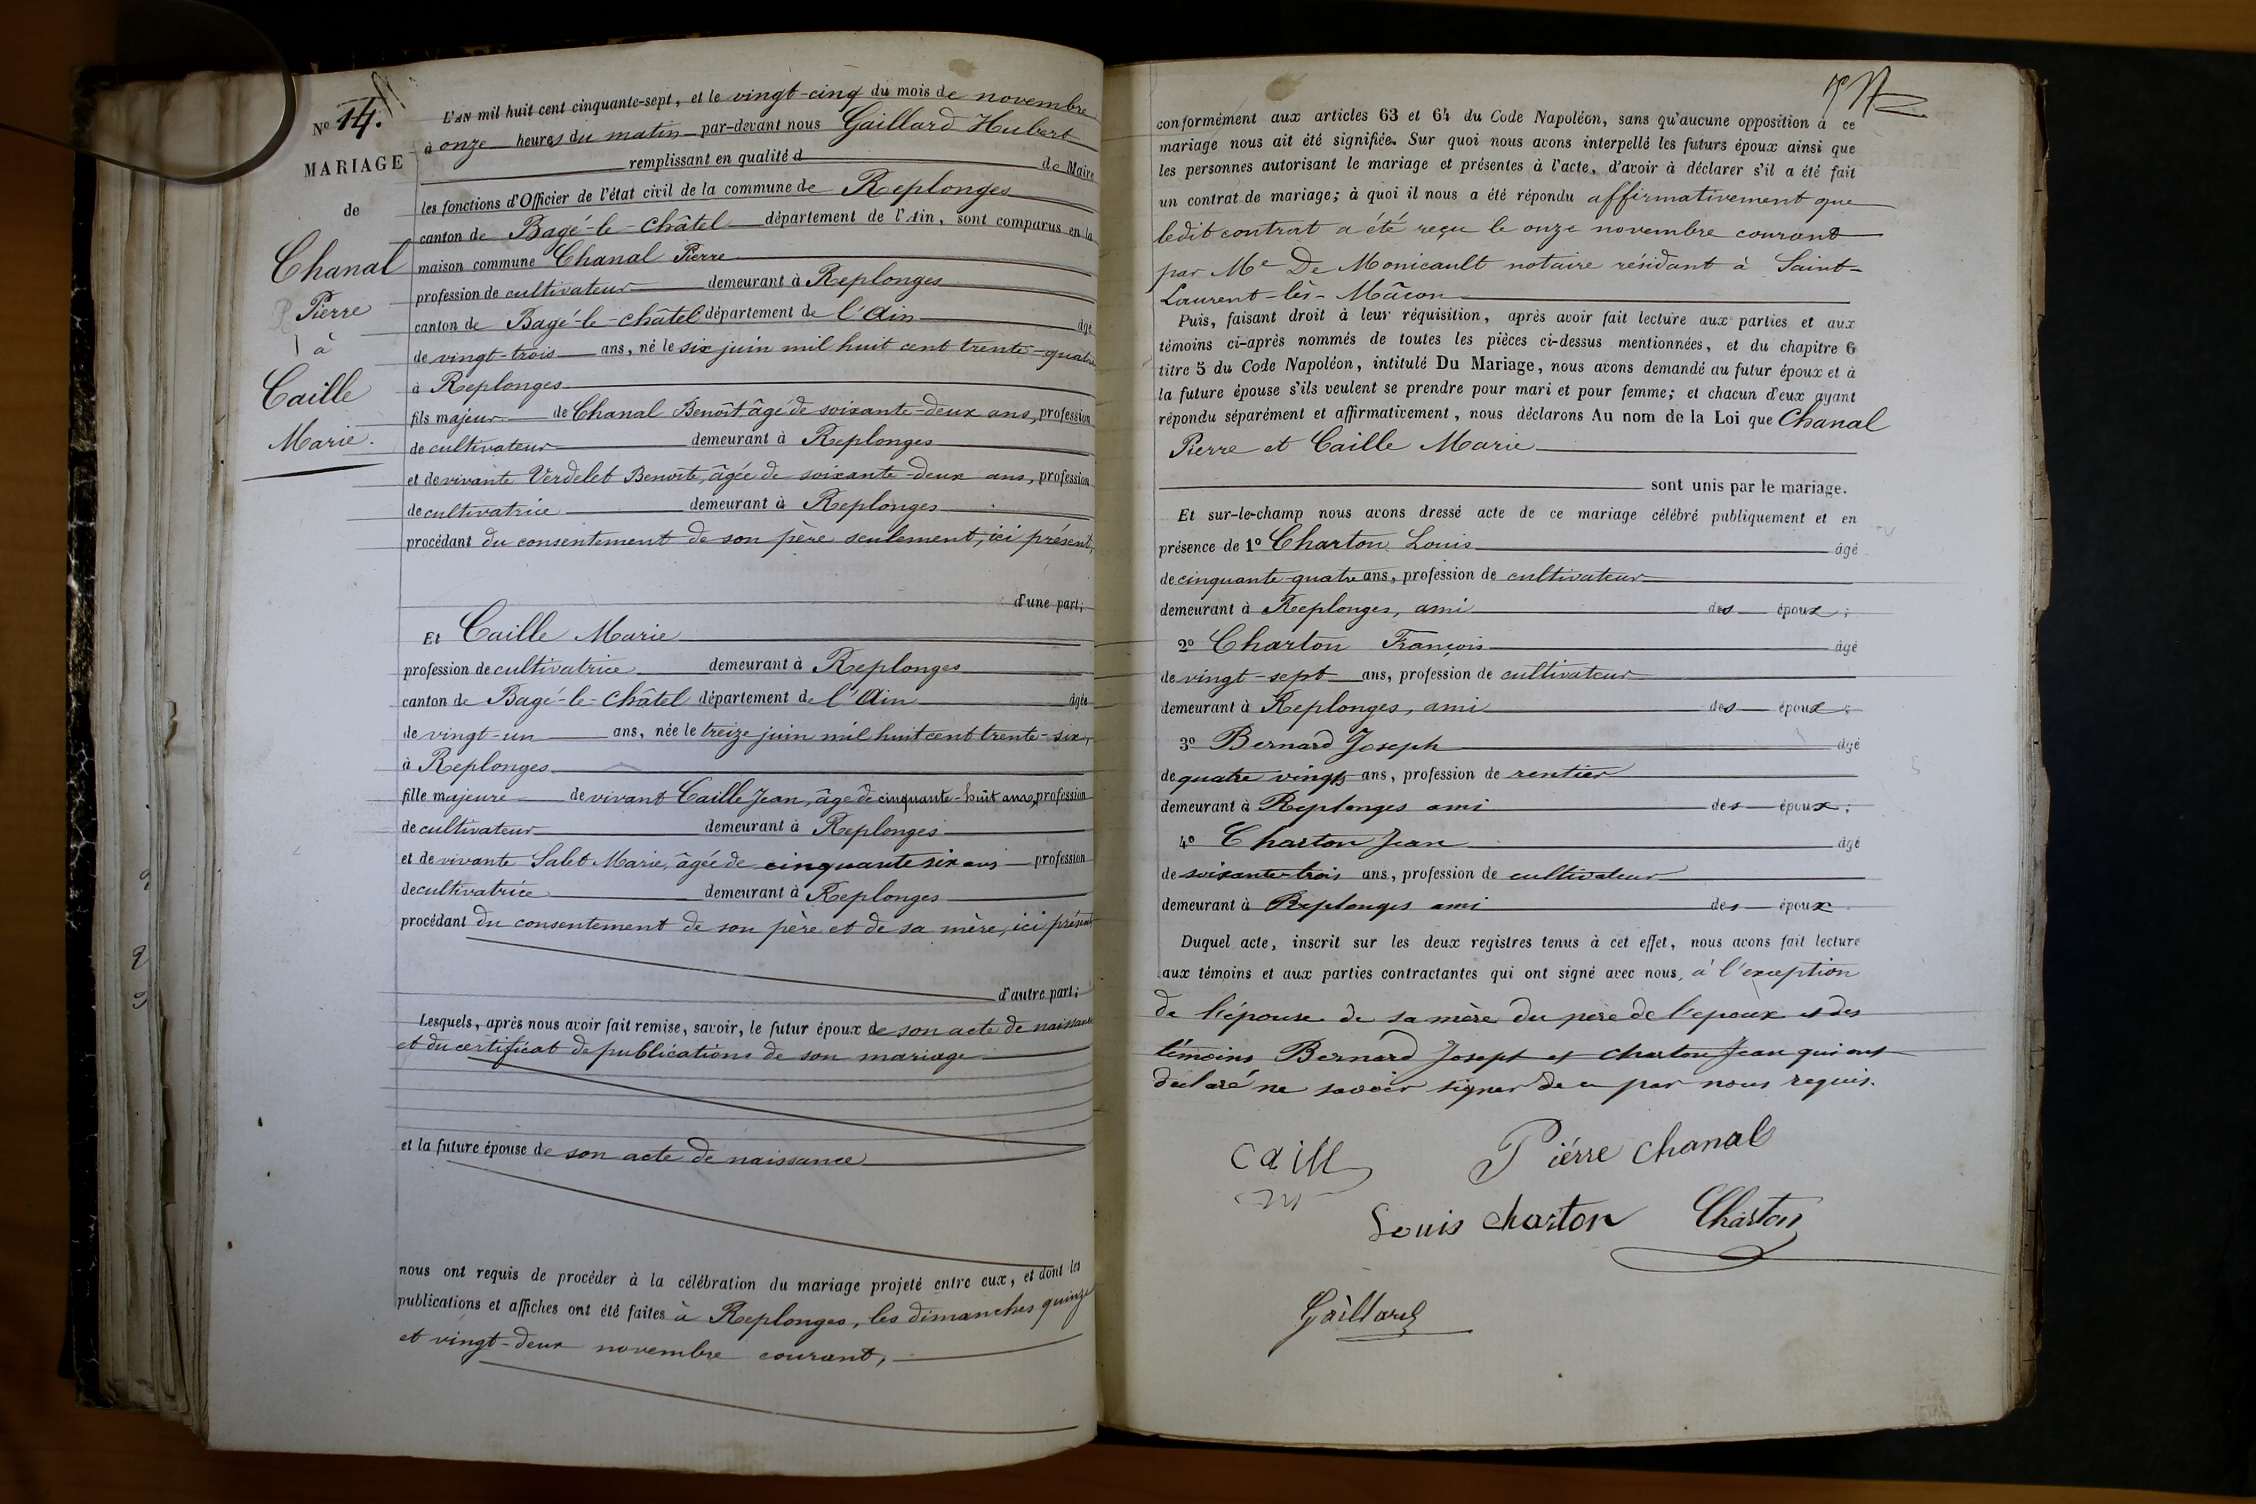 N° 14.
MARIAGE
de
Chanal
Pierre
à
Caille
Marie.
L'AN mil huit cent cinquante-sept, et le vingt-cinq du mois de novembre
à onze heures du matin par-devant nous Gaillard Hubert
remplissant en qualité de Maire
les fonctions d'Officier de l'état civil de la commune de Replonges
canton de Bagé-le-Châtel département de l'Ain, sont comparus en la
maison commune Chanal Pierre
profession de cultivateur demeurant à Replonges
canton de Bagé-le-châtel département de l'Ain âgé
de vingt-trois ans, né le six juin mil huit cent trente-quatre
à Replonges
fils majeur de Chanal Benoît âgé de soixante-deux ans, profession
de cultivateur demeurant à Replonges
et de vivante Verdelet Benoite, âgée de soixante-deux ans, profession
de cultivatrice demeurant à Replonges
procédant du consentement de son père seulement, ici présent,
d'une part;
Et Caille Marie
profession de cultivatrice demeurant à Replonges
canton de Bagé-le-Châtel département de l'Ain âgée
de vingt-un ans, née le treize juin mil huit cent trente-six,
à Replonges
fille majeure de vivant Caille Jean, âgé de cinquante-huit ans, profession
de cultivateur demeurant à Replonges
et de vivante Salet Marie, âgée de cinquante six ans profession
de cultivatrice demeurant à Replonges
procédant du consentement de son père et de sa mère, ici présent
d'autre part;
Lesquels, après nous avoir fait remise, savoir, le futur époux de son acte de naissance
et du certificat de publications de son mariage
et la future épouse de son acte de naissance
nous ont requis de procéder à la célébration du mariage projeté entre eux, et dont les
publications et affiches ont été faites à Replonges, les dimanches quinze
et vingt-deux novembre courant,
conformément aux articles 63 et 64 du Code Napoléon, sans qu'aucune opposition à ce
mariage nous ait été signifiée. Sur quoi nous avons interpellé les futurs époux ainsi que
les personnes autorisant le mariage et présentes à l'acte, d'avoir à déclarer s'il a été fait
un contrat de mariage; à quoi il nous a été répondu affirmativement que
ledit contrat a été reçu le onze novembre courant
par Me De Monicault notaire résidant à Saint-
Laurent-lès-Mâcon
Puis, faisant droit à leur réquisition, après avoir fait lecture aux parties et aux
témoins ci-après nommés de toutes les pièces ci-dessus mentionnées, et du chapitre 6
titre 5 du Code Napoléon, intitulé Du Mariage, nous avons demandé au futur époux et à
la future épouse s'ils veulent se prendre pour mari et pour femme; et chacun d'eux ayant
répondu séparément et affirmativement, nous déclarons Au nom de la Loi que Chanal
Pierre et Caille Marie
sont unis par le mariage.
Et sur-le-champ nous avons dressé acte de ce mariage célébré publiquement et en
présence de 1° Charton Louis âgé
de cinquante-quatre ans, profession de cultivateur
demeurant à Replonges, ami des époux;
2° Charton François âgé
de vingt-sept ans, profession de cultivateur
demeurant à Replonges, ami des époux;
3° Bernard Joseph âgé
de quatre vingts ans, profession de rentier
demeurant à Replonges ami des époux;
4° Charton Jean âgé
de soixante-trois ans, profession de cultivateur
demeurant à Replonges ami des époux.
Duquel acte, inscrit sur les deux registres tenus à cet effet, nous avons fait lecture
aux témoins et aux parties contractantes qui ont signé avec nous, à l'exception
de l'épouse de sa mère du père de l'époux et des
témoins Bernard Joseph et Charton Jean qui ont
déclaré ne savoir signer de ce par nous requis.
Caill
Piérre Chanal
Louis Charton Charton
Gaillard